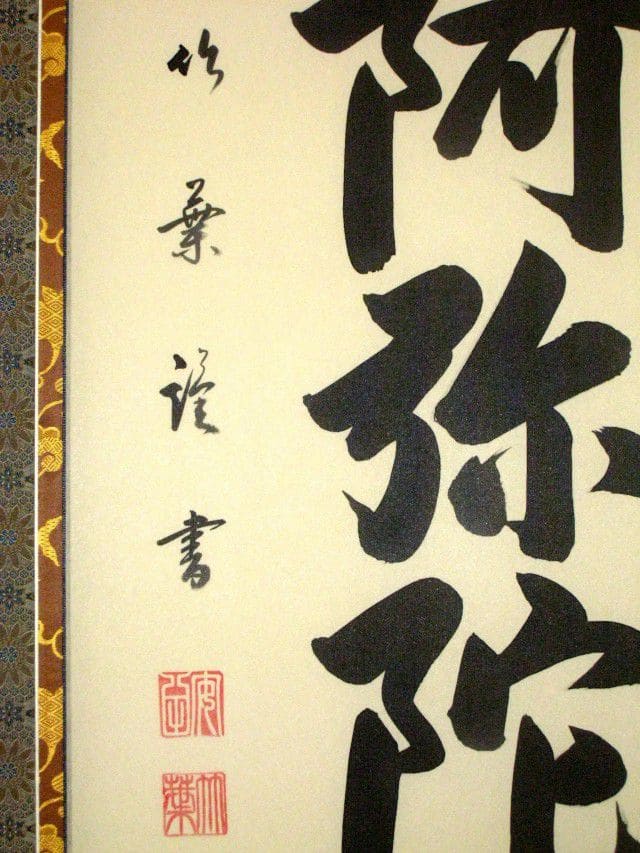 阿弥陀
竹葉謹書
竹葉